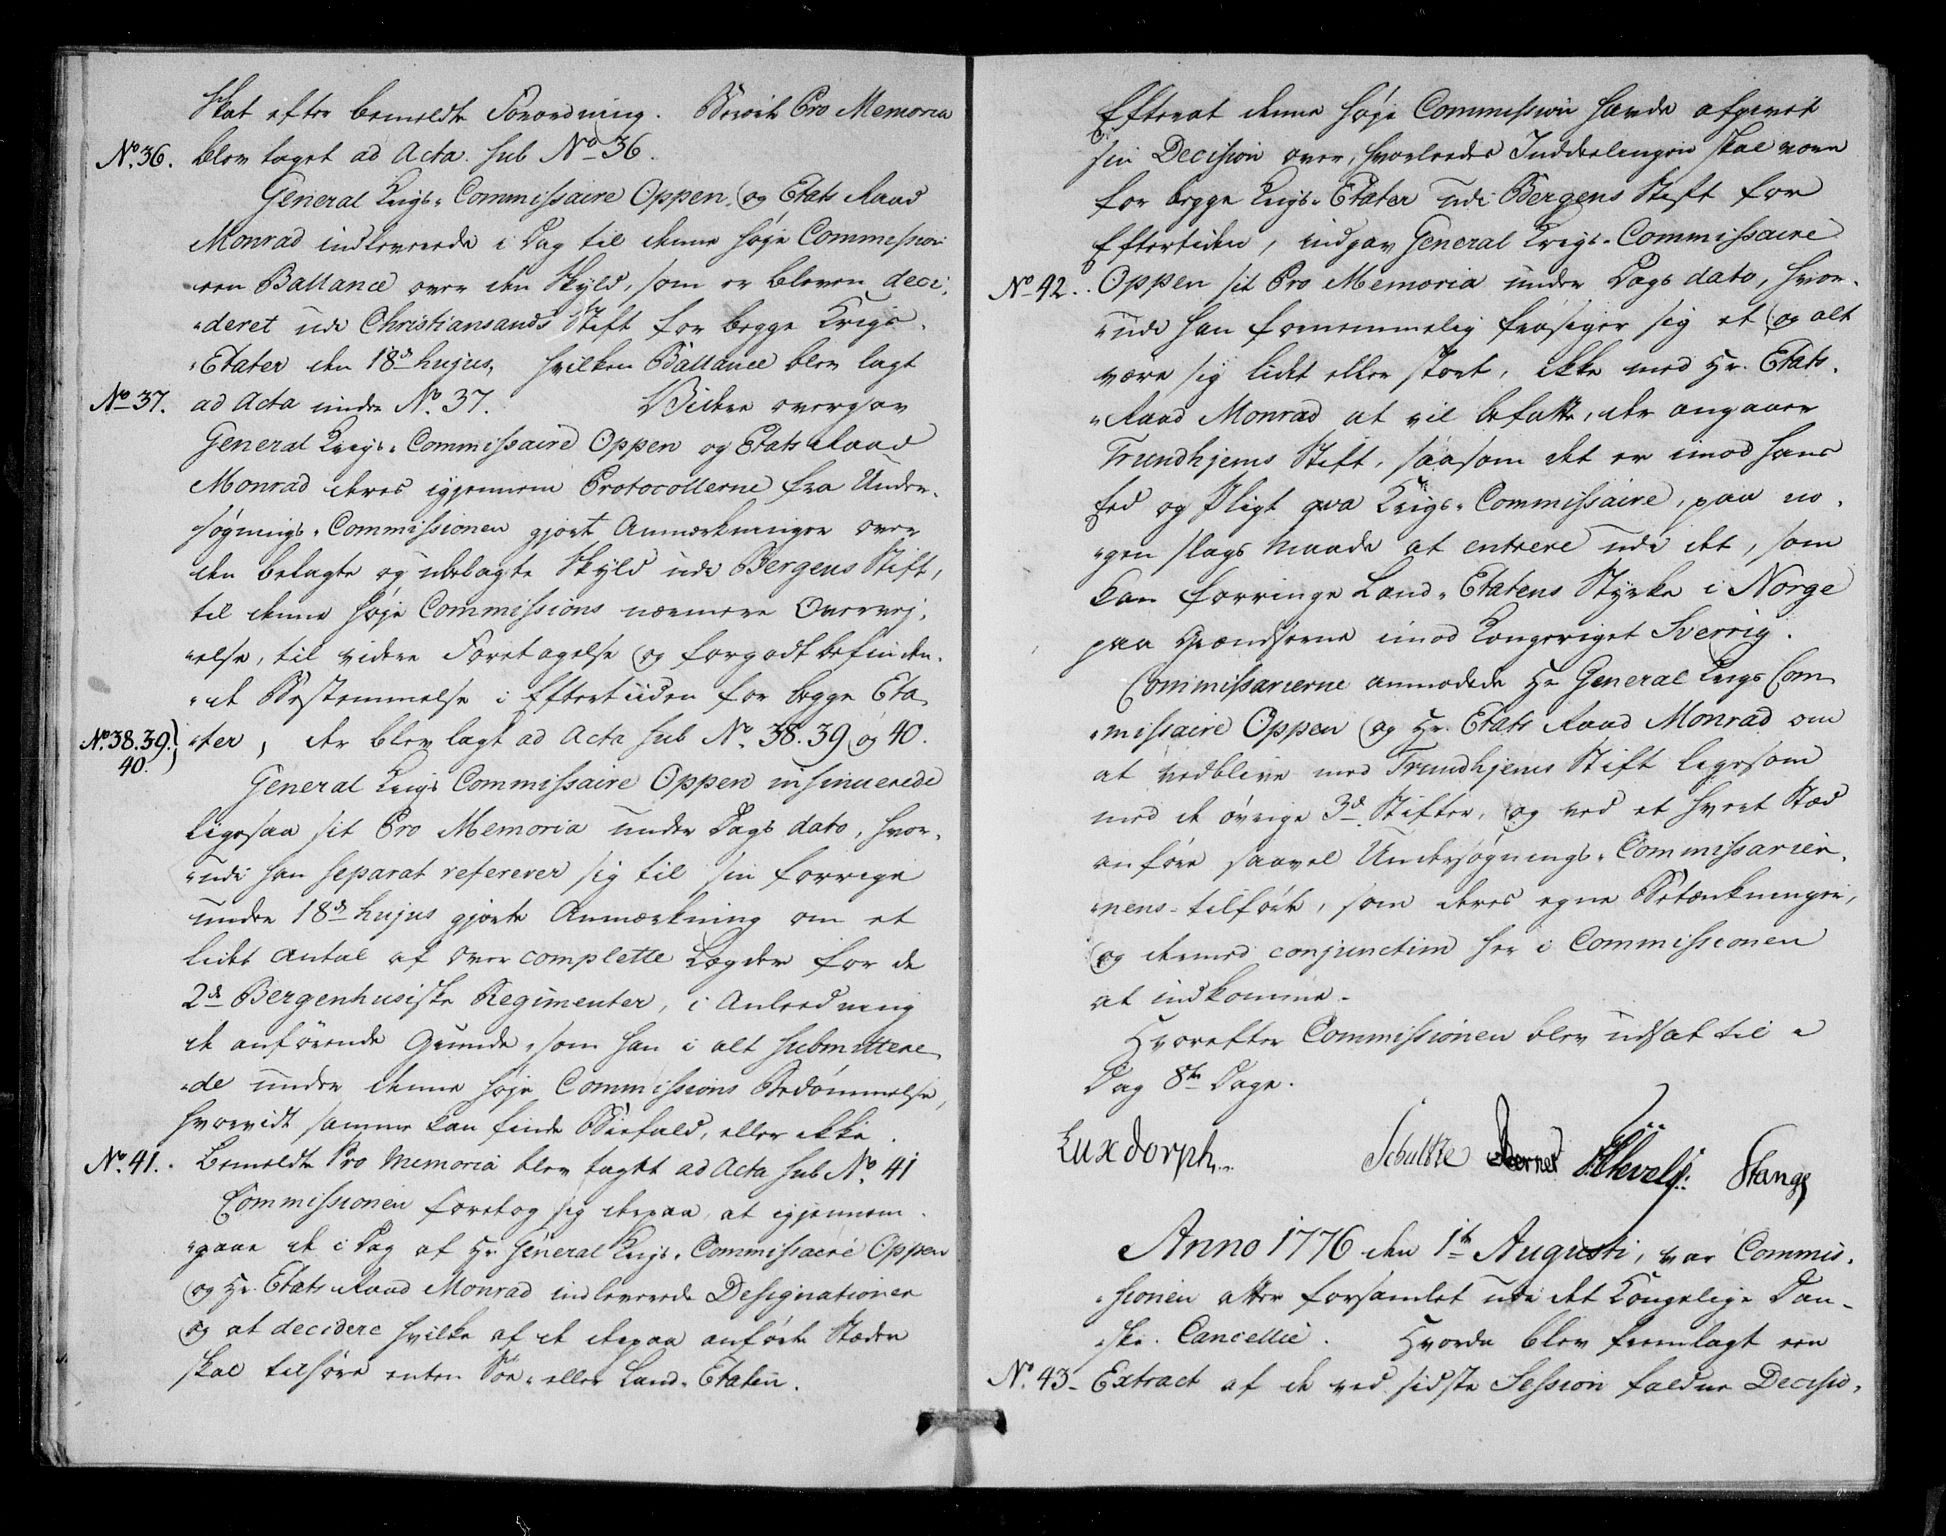 Skat efter bemeldte Forordning. Berørte Pro Memoria
No. 36. blev taget ad Acta sub No 36.
General Krigs-Commissaire Oppen og Etats Raad
Monrad indleverede i Dag til denne høje Commission
een Ballance over den Skyld, som er bleven deci-
-deret udi Christiansands Stift for begge Krigs-
-Etater den 18de hujus, hvilken Ballance blev lagt
No 37. ad Acta under No. 37. Videre overgav
General Krigs-Commissaire Oppen og Etats Raad
Monrad deres igjennem Protocollerne fra Under-
-søgnings-Commissionen gjort Anmærkninger over
den belagte og ubelagte Skyld udi Bergens Stift,
til denne høje Commissions nærmere Overvej-
-else, til videre Foretagelse og forgodt befinden-
-de Bestemmelse i Eftertiiden for begge Eta
No. 38. 39. 40. -ter, der blev lagt ad Acta sub No. 38. 39 og 40.
General Krigs Commissaire Oppen insinuerede
ligesaa sit Pro Memoria under Dags dato, hvor-
-udi han separat refererer sig til sin forrige
under 18de hujus gjorte Anmærkning om et
lidet Antal af over complette Lægder for de
2de Bergenhusiske Regimenter, i Anledning
de anførende Grunde, som han i alt submittere-
-de under denne høje Commissions Bedømmelse,
hvorvidt samme kan finde Biefald, eller ikke.
No. 41. Bemeldte Pro Memoria blev lagt ad Acta sub No. 41
Commissionen foretog sig derpaa, at igjennem-
-gaae de i Dag af Hr. General Krigs-Commissaire Oppen
og Hr. Etats Raad Monrad indleverede Designationer
og at decidere hvilke af de derpaa anførte Stæder
skal tilhøre enten Søe- eller Land-Etaten.
Efterat denne høje Commission havde afgivet
sin Decision over, hvorledes Inddeelingen skal være
for begge Krigs-Etater udi Bergens Stift for
Eftertiden, indgav General Krigs-Commissaire
No 42. Oppen sit Pro Memoria under Dags dato, hvor-
-udi han fornemmelig frasiger sig et og alt
være sig lidet eller stort, ikke med Hr. Etats-
-Raad Monrad at vil befatte, der angaaer
Trundhjems Stift, saasom det er imod hans
Eed og Pligt qva Krigs-Commissaire, paa no-
-gen slags Maade at entrere udi det, som
kan forringe Land-Etatens Styrke i Norge
paa Grændserne imod Kongeriget Sverrig.
Commissarierne anmodede Hr General Krigs Com
-missaire Oppen og Hr. Etats Raad Monrad om
at vedblive med Trundhjems Stift ligesom
med de øvrige 3de Stifter, og ved et hvert Stæd
anføre saavel Undersøgnings-Commissarier-
-nens tilførte, som deres egne Betænkninger,
og dermed conjunctim her i Commissionen
at indkomme.
Hvorefter Commissionen blev udsat til i
Dag 8te Dage.
Luxdorph. Schultze Stange
Anno 1776 den 1te Augusti, var Commis-
-sionen atter forsamlet udi det Kongelige Dan-
-ske Cancellie. Hvorda blev fremlagt een
No. 43. Extract af de ved sidste Session faldne Decisio-